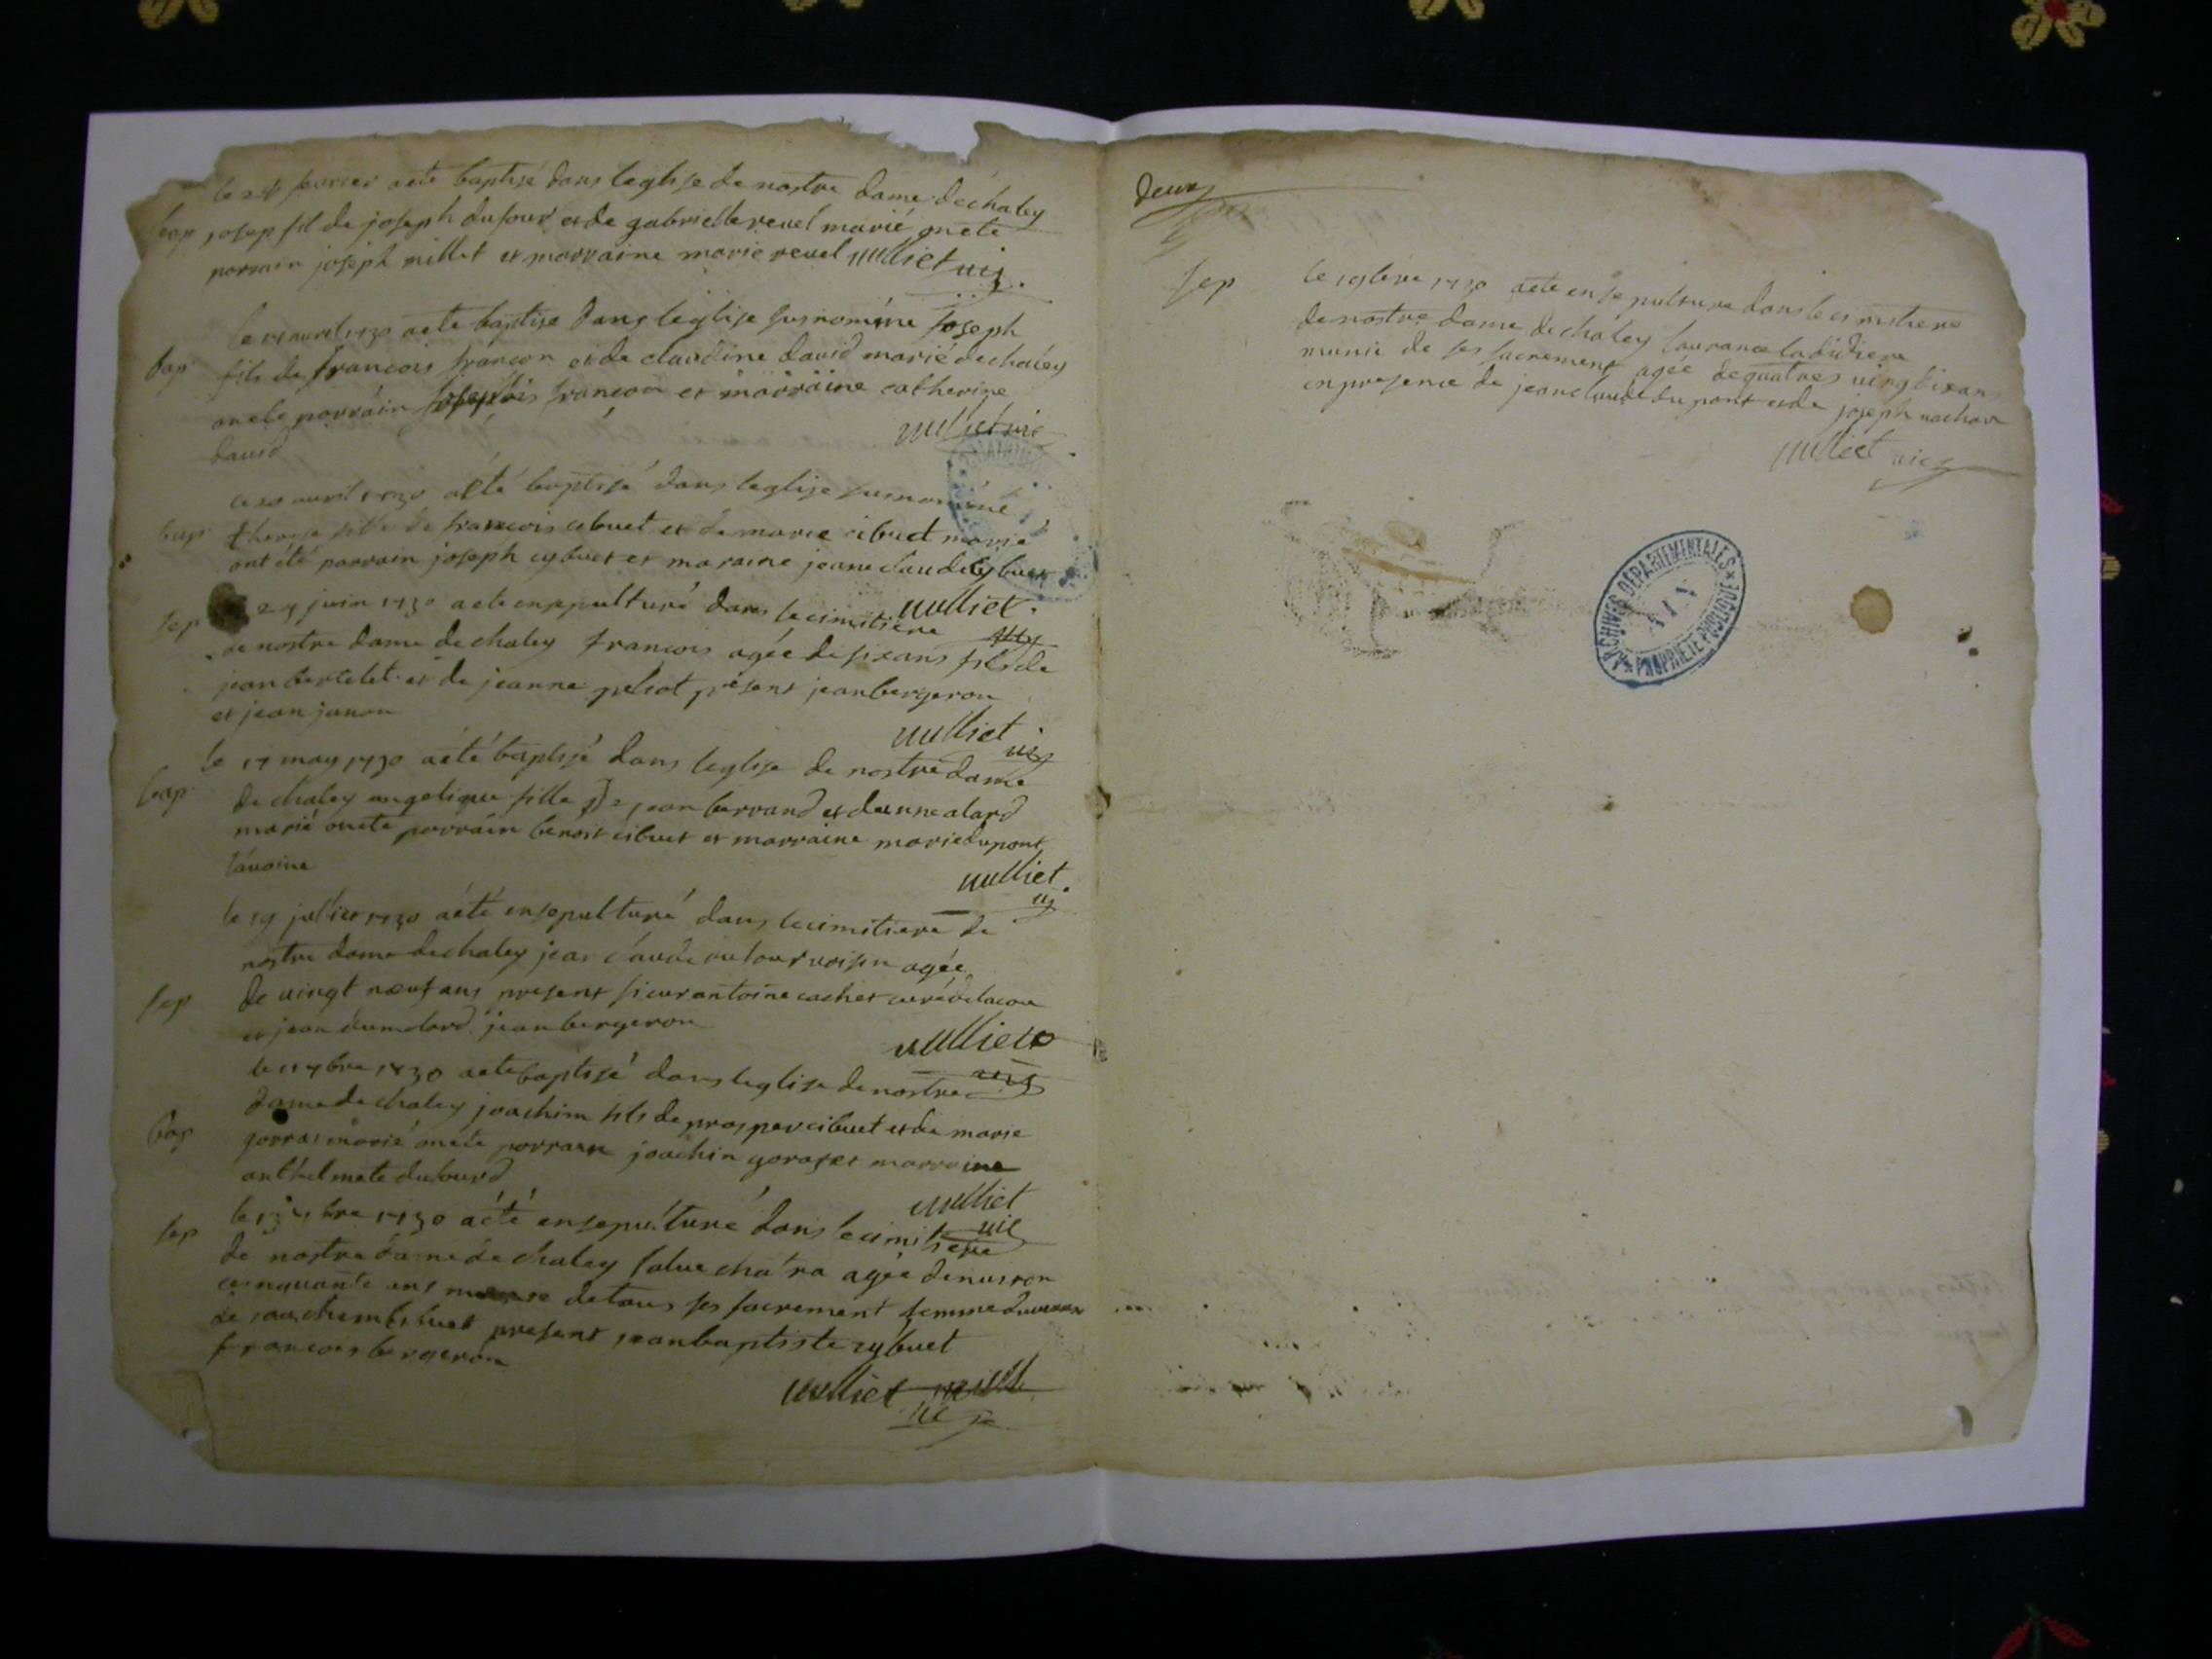 le 28 feurier aeté baptisé dans leglise de nostre dame de chaley
bap josep fil de joseph dufour et de gabrielle reuel marié onete
parrain joseph millet et marraine marie reuel uulliet uic
le auril 1730 aeté baptise dans leglise susnomine joseph
bap fils de francois francon et de claudine david marié de chaley
onete parrain francon et marraine catherine
david uulliet uic
le 20 auril 1730 aété baptisé dans leglise susnominé
bap therese fille de francois cibuet et de marie cibuet marié
ont été parrain joseph cybuet et maraine jeane claude cybuet
uulliet
sep juin 1730 aete ensepulturé dans le cimitiere
de nostre dame de chaley francois agée de six ans fils de
jean bertelet et de jeanne present jean bergeron
et jean junon
uulliet uic
le 17 may 1730 aété baptisé dans leglise de nostre dame
bap de chaley angelique fille de jean berrand et alard
marié onete parrain benoit cibuet et marraine marie dupont
uulliet
le 19 julliet 1730 aété ensepulturé dans le cimitiere de
nostre dame de chaley jean claude agée
sep de uingt neuf ans present sieur antoine cachet curé
et jean dumolard jean bergeron
uulliet uic
le 7bre 1730 aete baptisé dans leglise de nostre
dame de chaley joachim fils de prosper cibuet et de marie
bap gorras marié onete parrain joachin goras et marraine
anthelmete dufourd
uulliet uic
sep le bre 1730 aété ensepulturé dans le cimitiere
de nostre dame de chaley agée denuiron
cinquante ans de tous ses sacrement femme
de present jean baptiste cybuet
francois bergeron
uulliet
deux
sep le 1730 aete ensepulture dans le cimitiere
de nostre dame de chaley laurance
munie de ses sacrement agée de quatres uingt
en presence de jean claude dupont et de joseph
uulliet uic
ARCHIVES DÉPARTEMENTALES
AIN
PROPRIÉTÉ PUBLIQUE